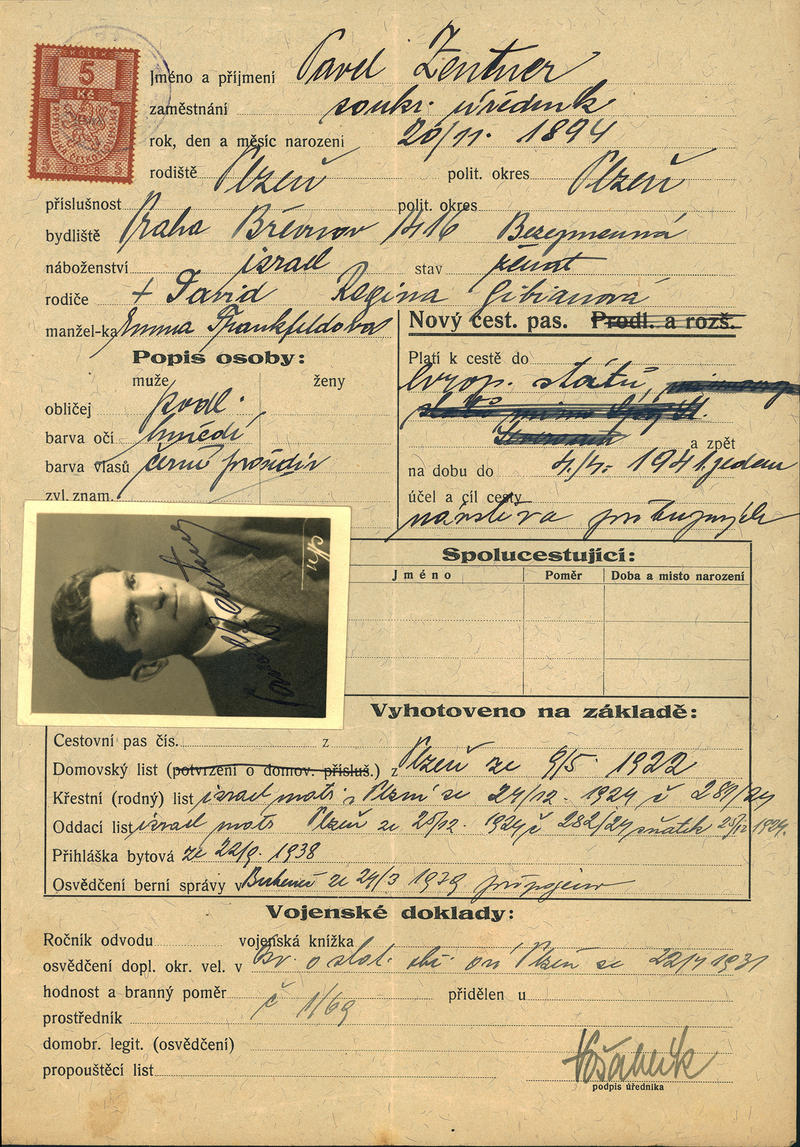 KOLEK
5
Kč
5 1938 5
Jméno a příjmení Pavel Zentner
zaměstnání soukr. úředník
rok, den a měsíc narození 20/11. 1894
rodiště Plzeň polit. okres Plzeň
příslušnost polit. okres
bydliště Praha Břevnov 1416 Bezejmenná
náboženství israel stav ženat
rodiče + David Regina Gibianová
manžel-ka Emma Frankfeldova
Nový cest. pas. Prodl. a rozš.
Popis osoby:
muže ženy
Platí k cestě do
evrop. států,
obličej podl.
barva očí hnědé
a zpět
barva vlasů černé prošediv
na dobu do 4./4. 1941 jeden
zvl. znam.
účel a cíl cesty
návštěva příbuzných
Spolucestující:
Jméno Poměr Doba a misto narození
Vyhotoveno na základě:
Cestovní pas čís. z
Domovský list (potvrzení o domov. přísluš.) z Plzeň ze 9/5. 1922
Křestní (rodný) list israel mat. Plzni ze 24/12. 1924 č 289/24
Oddací list israel mat. Plzeň ze 25/12. 1924 č 282/24 sňatek 25/12 1924.
Přihláška bytová ze 22/9. 1938
Osvědčení berní správy v ze 24/3 1939 připojeno
Vojenské doklady:
Ročník odvodu vojenská knížka
osvědčení dopl. okr. vel. v o stat. obč. Plzeň ze 1931
hodnost a branný poměr č 1/69 přidělen u
prostředník
domobr. legit. (osvědčení)
propouštěcí list
podpis úředníka